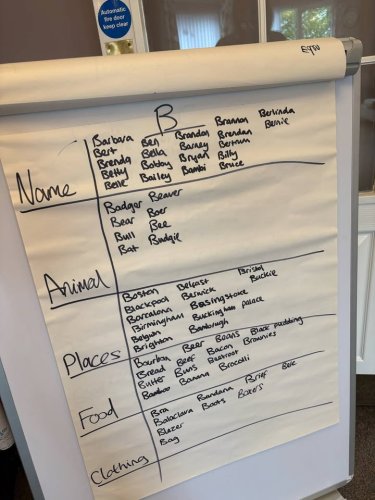 Automatic
fire door
keep clear
B
Name
Barbara Ben Brandon Brannon Berlinda
Bert Bella Barney Brendan Bernie
Brenda Bobby Bryan Bertrum
Betty Bailey Bambi Billy
Belle Bruce
Animal
Badger Beaver
Bear Boer
Bull Bee
Bat Budgie
Places
Boston Belfast Bristol
Blackpool Berwick Buckie
Barcelona Basingstoke
Birmingham Buckingham palace
Belgium Bamburgh
Brighton
Food
Bourbon Beer Beans Black pudding
Bread Beef Bacon Brownies
Butter Buns Beetroot
Bamboo Banana Brocolli
Clothing
Bra Bandana Brief
Balaclava Boots Boxers
Blazer
Bag